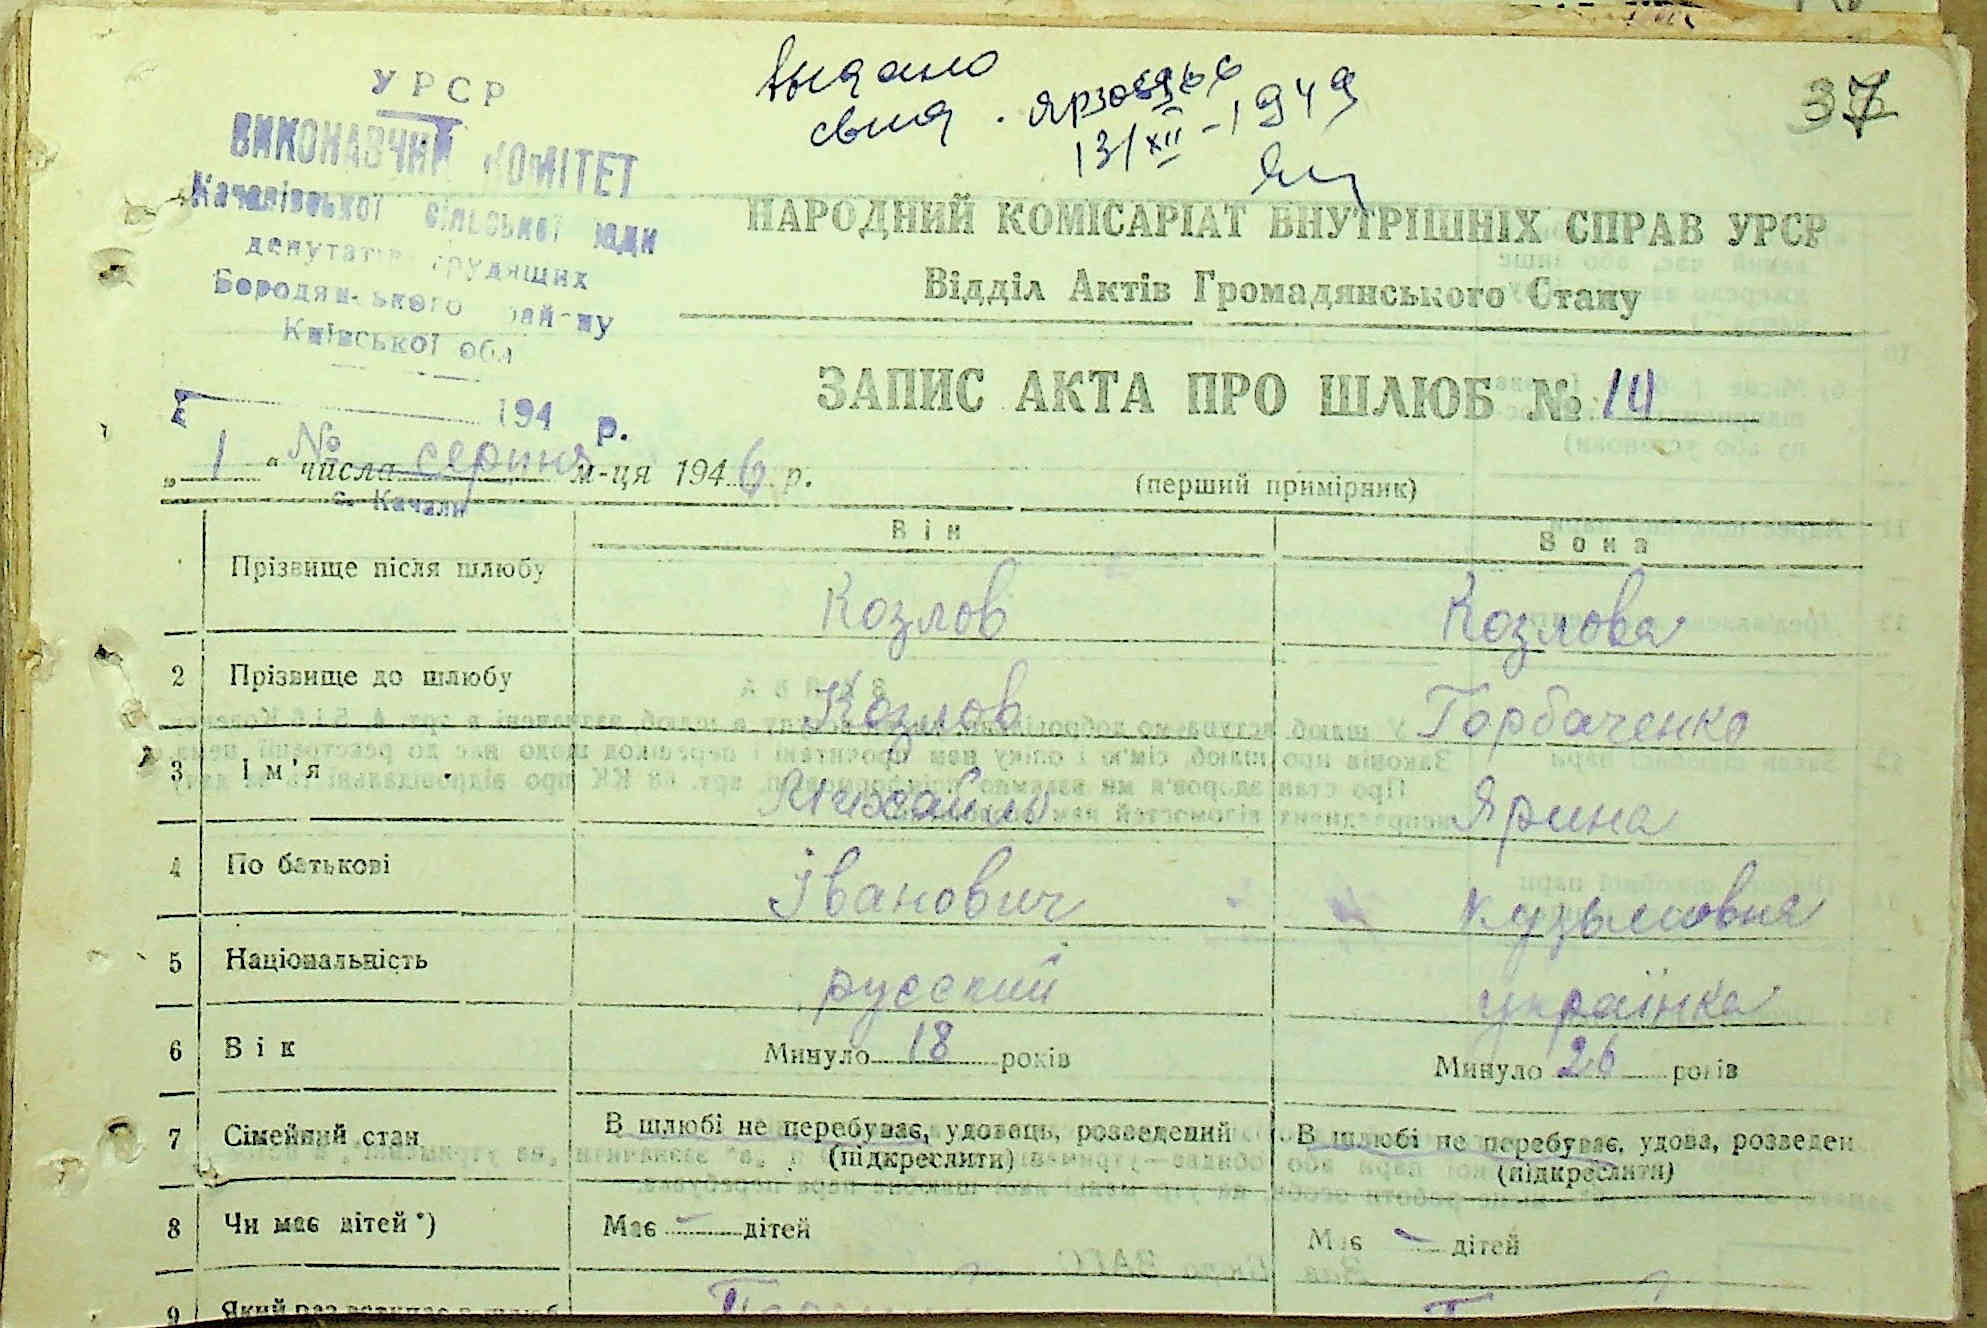 выдано
свид.
13/XII-1949
37
УРСР
ВИКОНАВЧИЙ КОМІТЕТ
Качалівської сільської ради
депутатів трудящих
Бородянського району
Київської обл
194 р.
№
с. Качали
НАРОДНИЙ КОМІСАРІАТ ВНУТРІШНІХ СПРАВ УРСР
Відділ Актів Громадянського Стану
ЗАПИС АКТА ПРО ШЛЮБ № 14
„ 1 “ числа серпня м-ця 1946 р.
(перший примірник)
Він Вона
Прізвище після шлюбу Козлов Козлова
2 Прізвище до шлюбу Козлов Горбаченко
3 Ім'я Михайль Ярина
4 По батькові Іванович Кузьмовня
5 Національність русский українка
6 Вік Минуло 18 років Минуло 26 років
7 Сімейний стан В шлюбі не перебуває, удовець, розведений В шлюбі не перебуває, удова, розведен
(підкреслити) (підкреслити)
8 Чи має дітей*) Має - дітей Має - дітей
9 Який раз вступає в шлюб